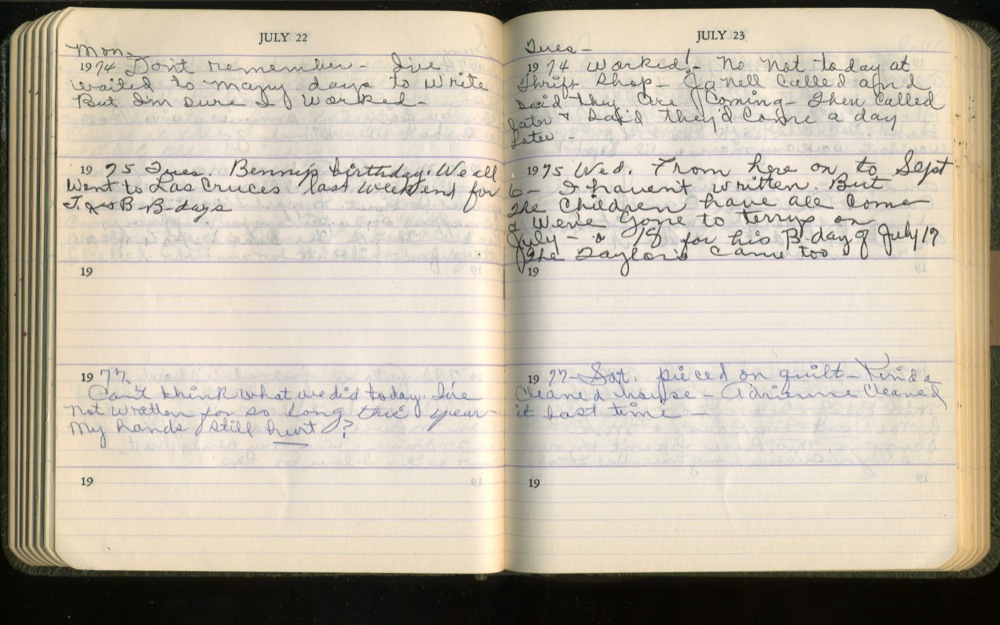 JULY 22
Mon-
1974 Don't remember - I've
waited to many days to write
But I'm sure I worked -
1975 Tues. Bennip birthday. We all
Went to Las Cruces last weekend for
J. & B B-days
19
1977
Can't think what we did today. I've
not written for so long this year -
My hands still hurt?
19
JULY 23
Tues-
1974 Worked! - No Not today at
Thrift Shop - Janell called and
said they are coming - Then called
later & said they'd come a day
Later -
1975 Wed. From here on to Sept
6 - I haven't written. But
The Children have all come
& We've gone to Terrys on
July - 18 for his B-day of July 17
The Taylors came too
19
1977 - Sat. pieced on quilt - Kinda
cleaned house - Adrienne cleaned
it last time -
19